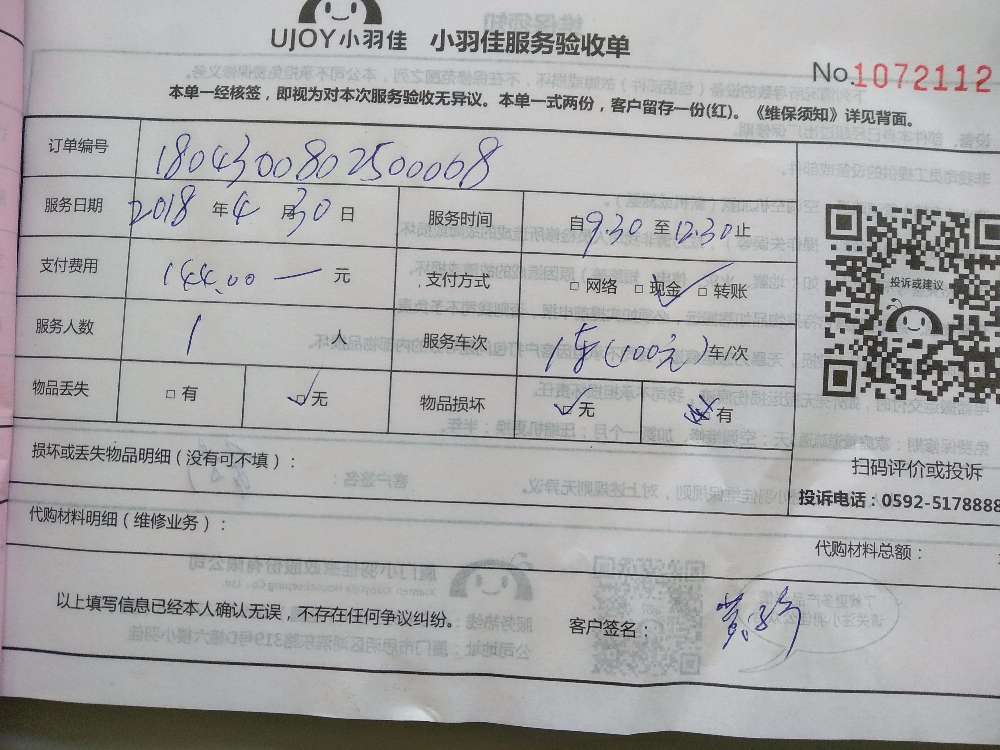 UJOY小羽佳 小羽佳服务验收单
No.1072112
本单一经核签，即视为对本次服务验收无异议。本单一式两份，客户留存一份(红)。《维保须知》详见背面。
订单编号 1804300802500068
服务日期 2018 年 4 月 30 日 服务时间 自 9.30 至 12.30 止
支付费用 144.00 — 元 支付方式 □ 网络 □ 现金 ✓ □ 转账
服务人数 1 人 服务车次 1车(100元) 车/次
物品丢失 □ 有 ☑ 无 物品损坏 ☑ 无 有
损坏或丢失物品明细（没有可不填）：
代购材料明细（维修业务）：
代购材料总额：
以上填写信息已经本人确认无误，不存在任何争议纠纷。
客户签名：
投诉或建议
扫码评价或投诉
投诉电话：0592-5178888